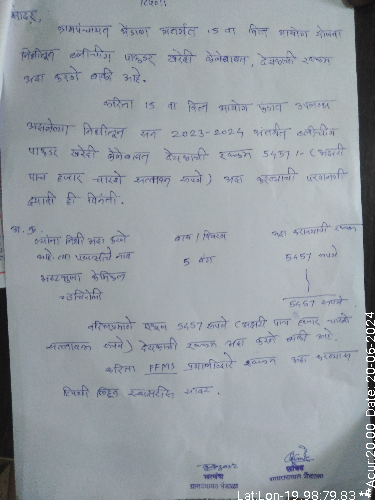 सादर,
ग्रामपंचायत येंडाळा अंतर्गत 15 वा वित्त आयोग योजना
निधीतून ब्लीचींग पावडर खरेदी केलेबाबत, देयकाची रक्कम
अदा करणे बाकी आहे.
करिता 15 वा वित्त आयोग
असलेल्या निधीतून सन 2023-2024 अंतर्गत ब्लीचींग
पावडर खरेदी केलेबाबत देयकाची रक्कम 5457/- (अक्षरी
पाच हजार चारशे सत्तावन्न रुपये) अदा करण्याची परवानगी
द्यावी ही विनंती.
अ. क्र.
ज्यांना निधी अदा करणे बाब / विवरण अदा करावयाची रक्कम
आहे त्या नाव 5 बॅग 5457 रुपये
केमिकल
गडचिरोली 5457 रुपये
वरीलप्रमाणे एकुण 5457 रुपये (अक्षरी पाच हजार चारशे
सत्तावन्न रुपये) देयकाची रक्कम अदा करणे बाकी आहे.
करिता PFMS प्रणालीद्वारे रक्कम अदा करण्यास
टिपणी लिहून स्वाक्षरीस सादर.
सरपंच सचिव
ग्रामपंचायत येंडाळा ग्रामपंचायत येंडाळा
Lat:Lon-19.98:79.83 **Acur:20.00 Date: 20-06-2024